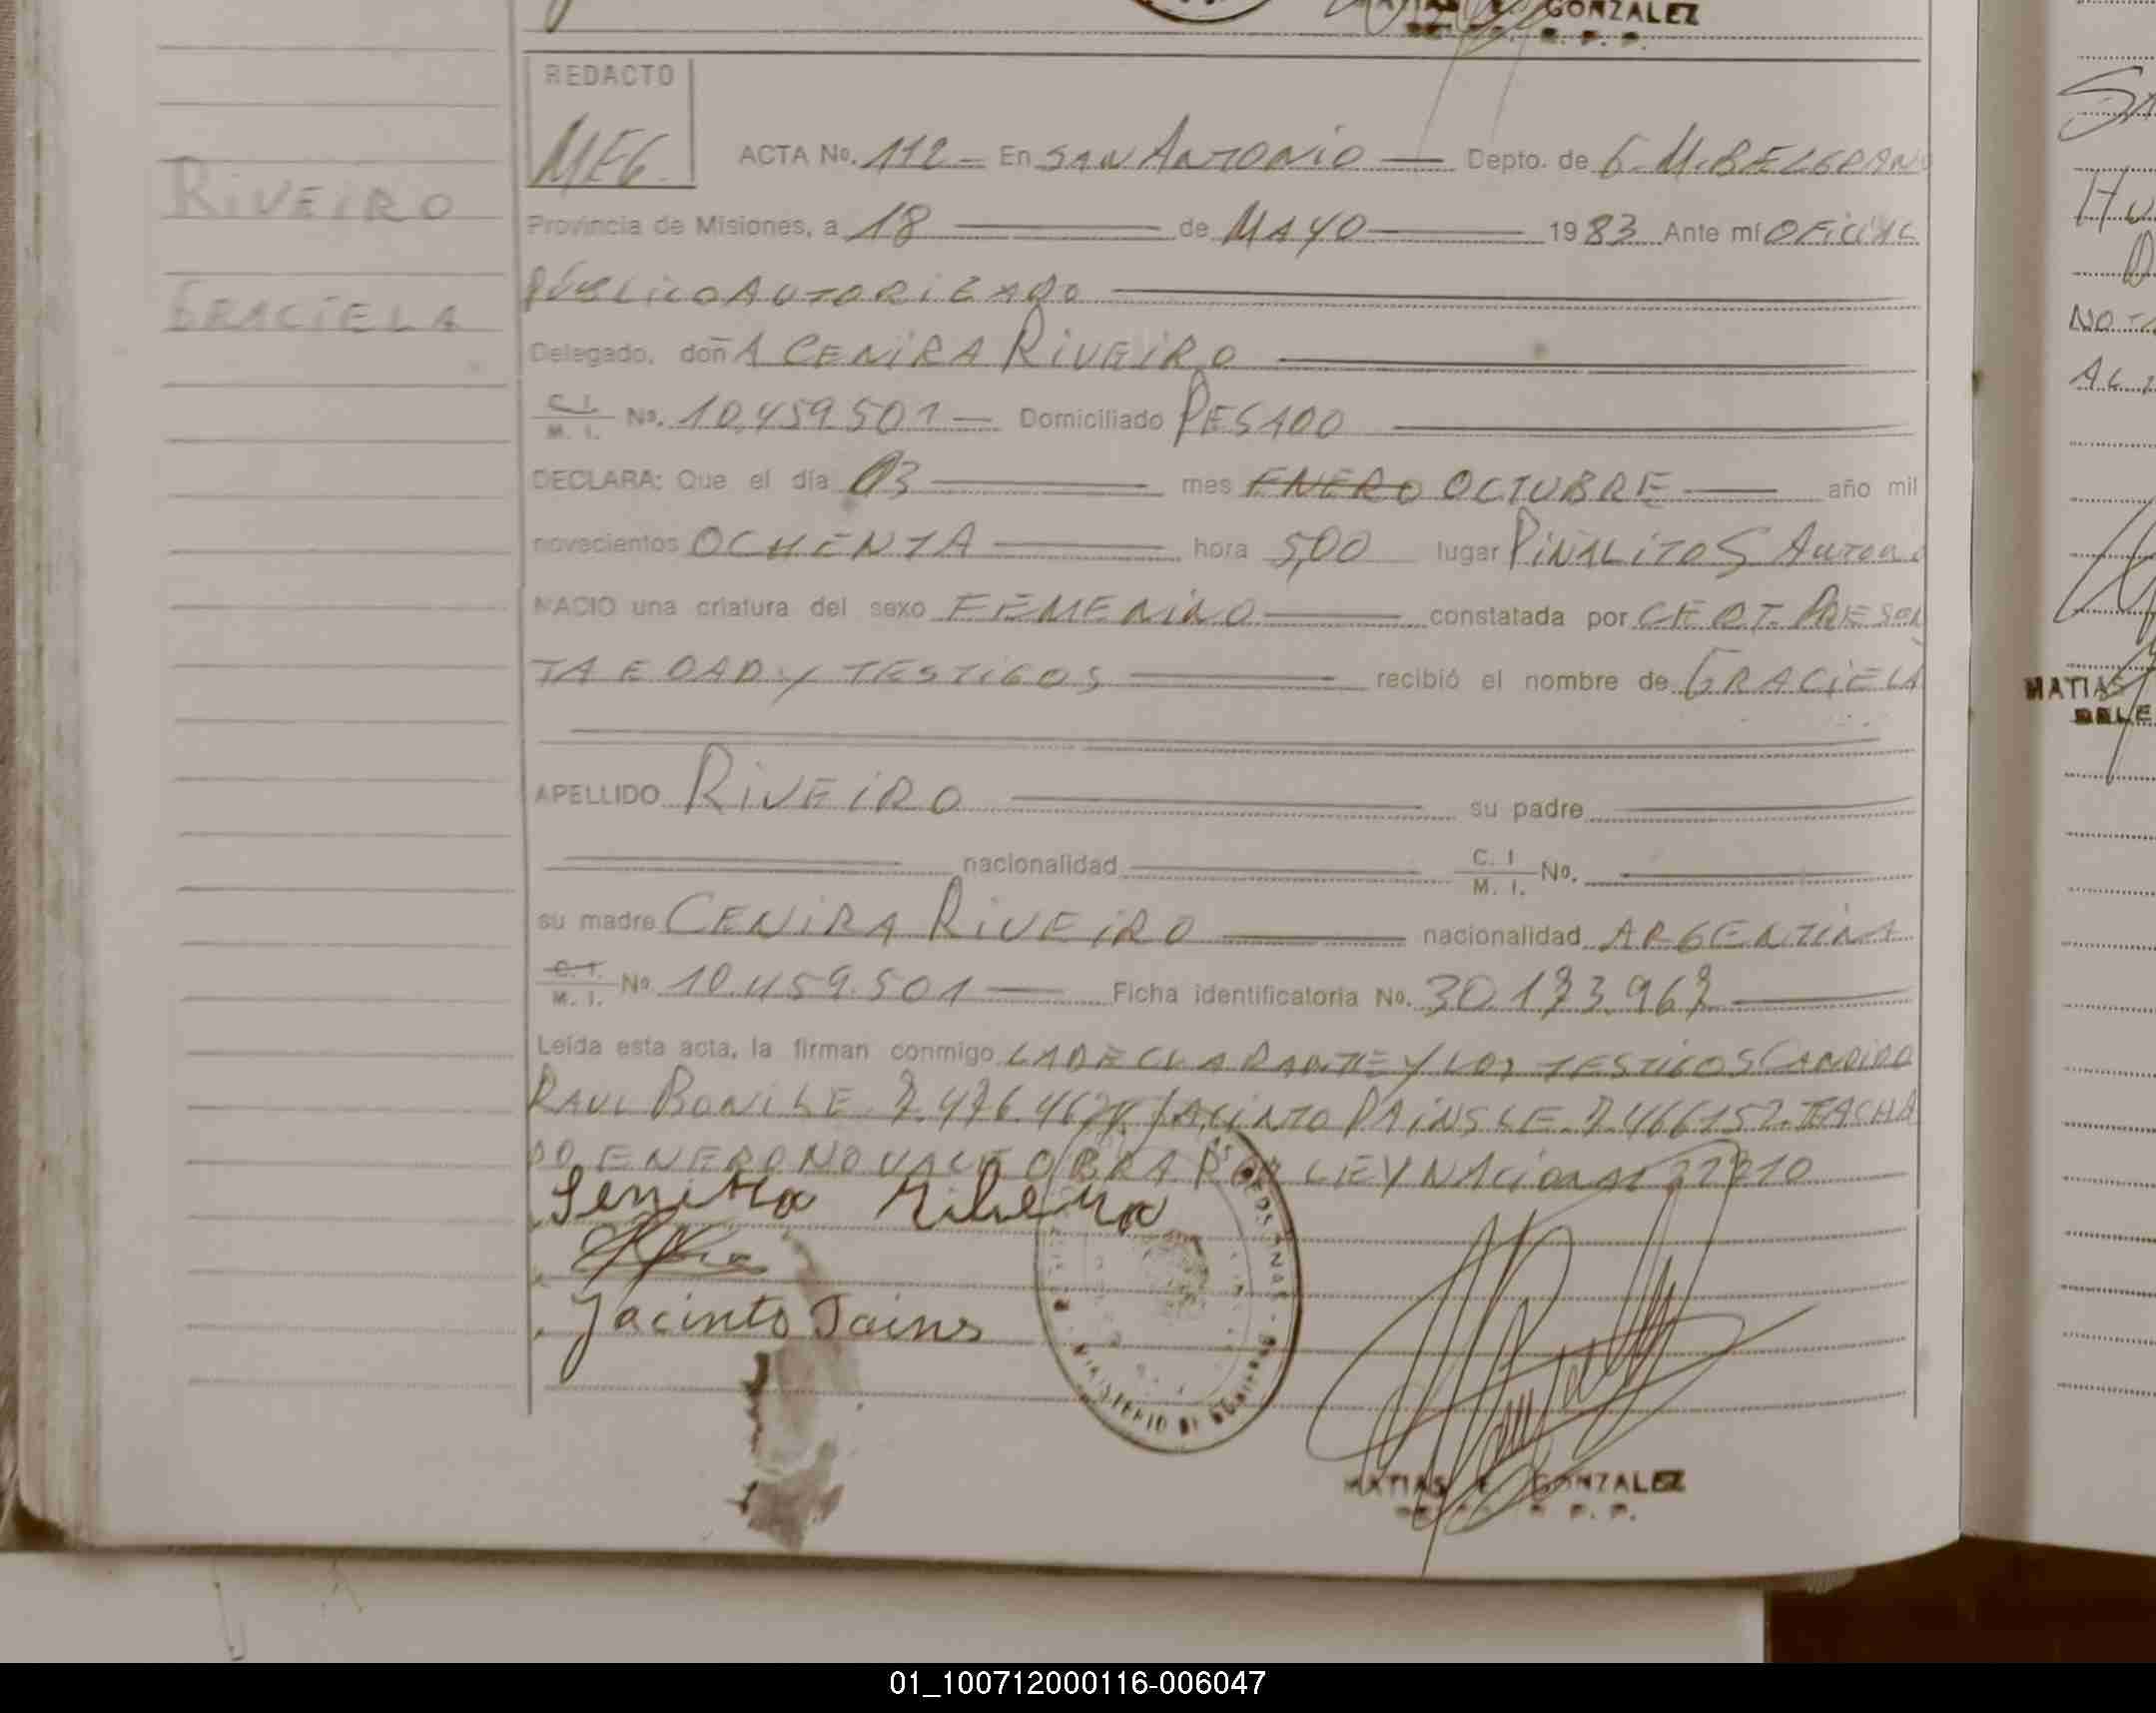 GONZALEZ
REDACTO
MEG.
ACTA No. 112 - En SAN ANTONIO Depto. de G. M. BELGRANO
Provincia de Misiones, a 18 de MAYO 1983 Ante mí OFICIAL
PÚBLICO AUTORIZADO
Delegado, doñA CENIRA RIVEIRO
C. I. M. I. No. 10.459.501 - Domiciliado
DECLARA: Que el día 03 mes ENERO OCTUBRE año mil
novecientos OCHENTA hora 5,00 lugar PINALITOS
NACIO una criatura del sexo FEMENINO constatada por CERT. PRESUN
TA EDAD Y TESTIGOS recibió el nombre de GRACIELA
APELLIDO RIVEIRO su padre
nacionalidad C. I M. I. No.
su madre CENIRA RIVEIRO nacionalidad ARGENTINA
C. I. M. I. No 10.459.501 Ficha identificatoria No. 30.173.967
Leída esta acta, la firman conmigo LA DECLARANTE Y LOS TESTIGOS CANDIDO
RAUL JACINTO PAINS LE. 7.466152. TACHA
DO ENERO NO VALE OBRA POR LEY NACIONAL
Jacinto Pains
MATIAS E. GONZALEZ
RIVEIRO
GRACIELA
MATIAS
DELE
01_100712000116-006047